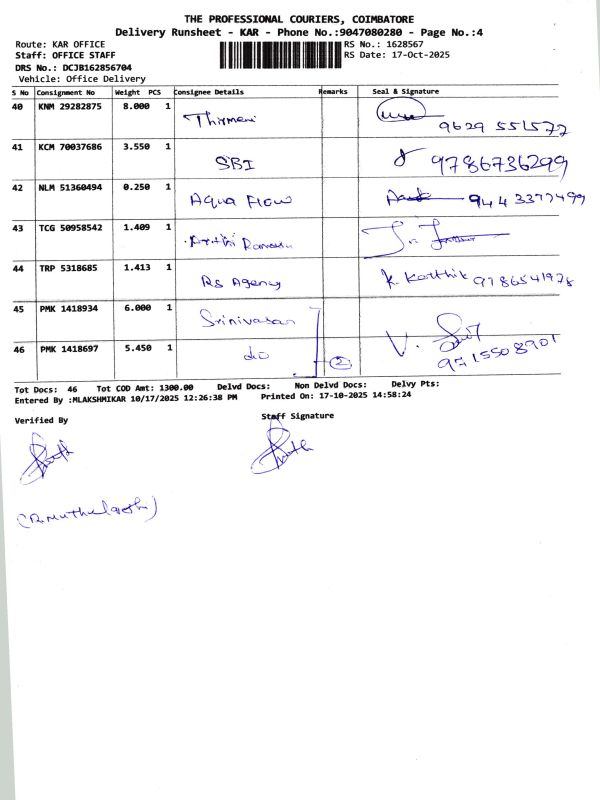 THE PROFESSIONAL COURIERS, COIMBATORE
Delivery Runsheet - KAR - Phone No.:9047080280 - Page No.:4
Route: KAR OFFICE RS No.: 1628567
Staff: OFFICE STAFF RS Date: 17-Oct-2025
DRS No.: DCJB162856704
Vehicle: Office Delivery
S No Consignment No Weight PCS Consignee Details Remarks Seal & Signature
40 KNM 29282875 8.000 1 Thirmeni
9629 551572
41 KCM 70037686 3.550 1 SBI 9786736299
42 NLM 51360494 0.250 1 Aqua Flow 9443377499
43 TCG 50958542 1.409 1
44 TRP 5318685 1.413 1 Rs Agency K. Karthik 9786541978
45 PMK 1418934 6.000 1 Srinivasan
46 PMK 1418697 5.450 1 do 2 V. 9715508901
Tot Docs: 46 Tot COD Amt: 1300.00 Delvd Docs: Non Delvd Docs: Delvy Pts:
Entered By :MLAKSHMIKAR 10/17/2025 12:26:38 PM Printed On: 17-10-2025 14:58:24
Verified By Staff Signature